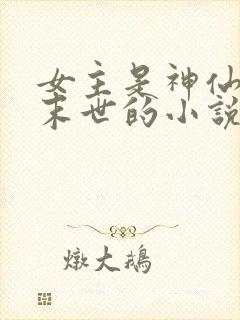 女主是神仙
末世的小說
燉大鵝